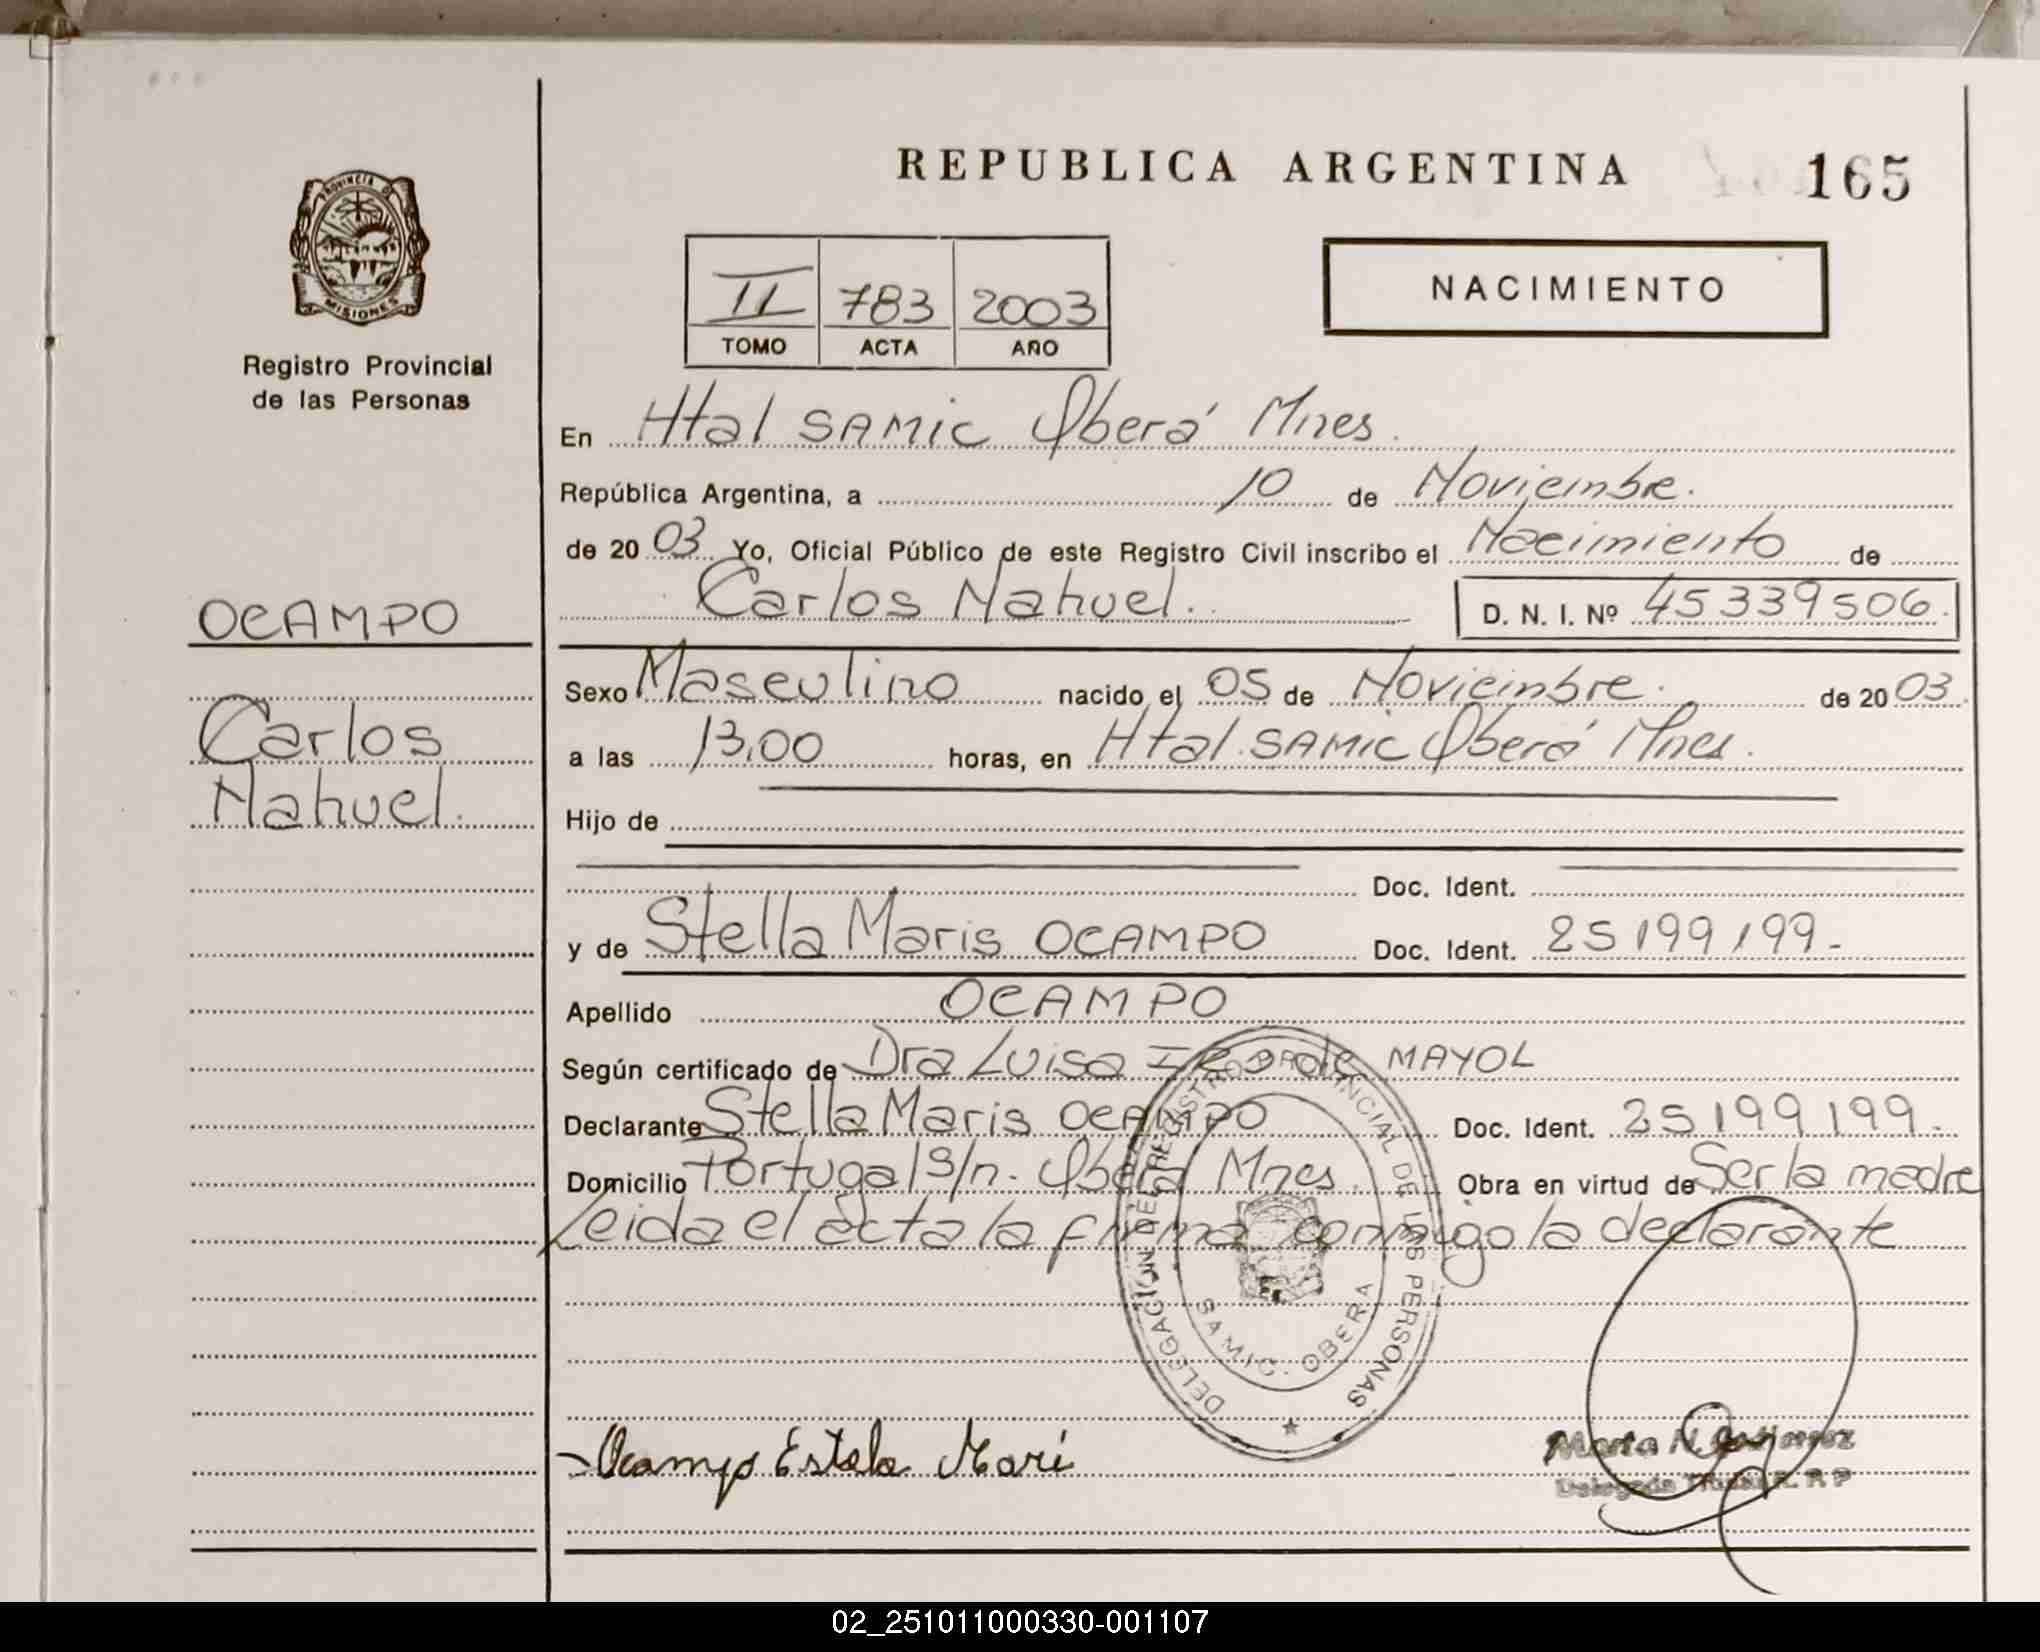 REPUBLICA ARGENTINA
165
PROVINCIA DE
MISIONES
Registro Provincial
de las Personas
II 783 2003
TOMO ACTA AÑO
NACIMIENTO
En Htal SAMIC Oberá Mnes.
República Argentina, a 10 de Noviembre.
de 20 03 Yo, Oficial Público de este Registro Civil inscribo el Nacimiento de
Carlos Nahuel. D. N. I. Nº 45339506.
OCAMPO
Carlos
Nahuel.
Sexo Masculino nacido el 05 de Noviembre. de 20 03.
a las 13,00 horas, en Htal. SAMIC Oberá Mnes.
Hijo de
Doc. Ident.
y de Stella Maris OCAMPO Doc. Ident. 25199199.-
Apellido OCAMPO
Según certificado de Dra Luisa de MAYOL
Declarante Stella Maris OCAMPO Doc. Ident. 25199199.-
Domicilio Portugal s/n. Oberá Mnes. Obra en virtud de Ser la madre
Leida el acta la firma conmigo la declarante
DELEGACION DEL REGISTRO PROVINCIAL DE LAS PERSONAS
SAMIC - OBERA
Ocampo Estela Mari
Marta N.
Delegada Titular R. P. P
02_251011000330-001107